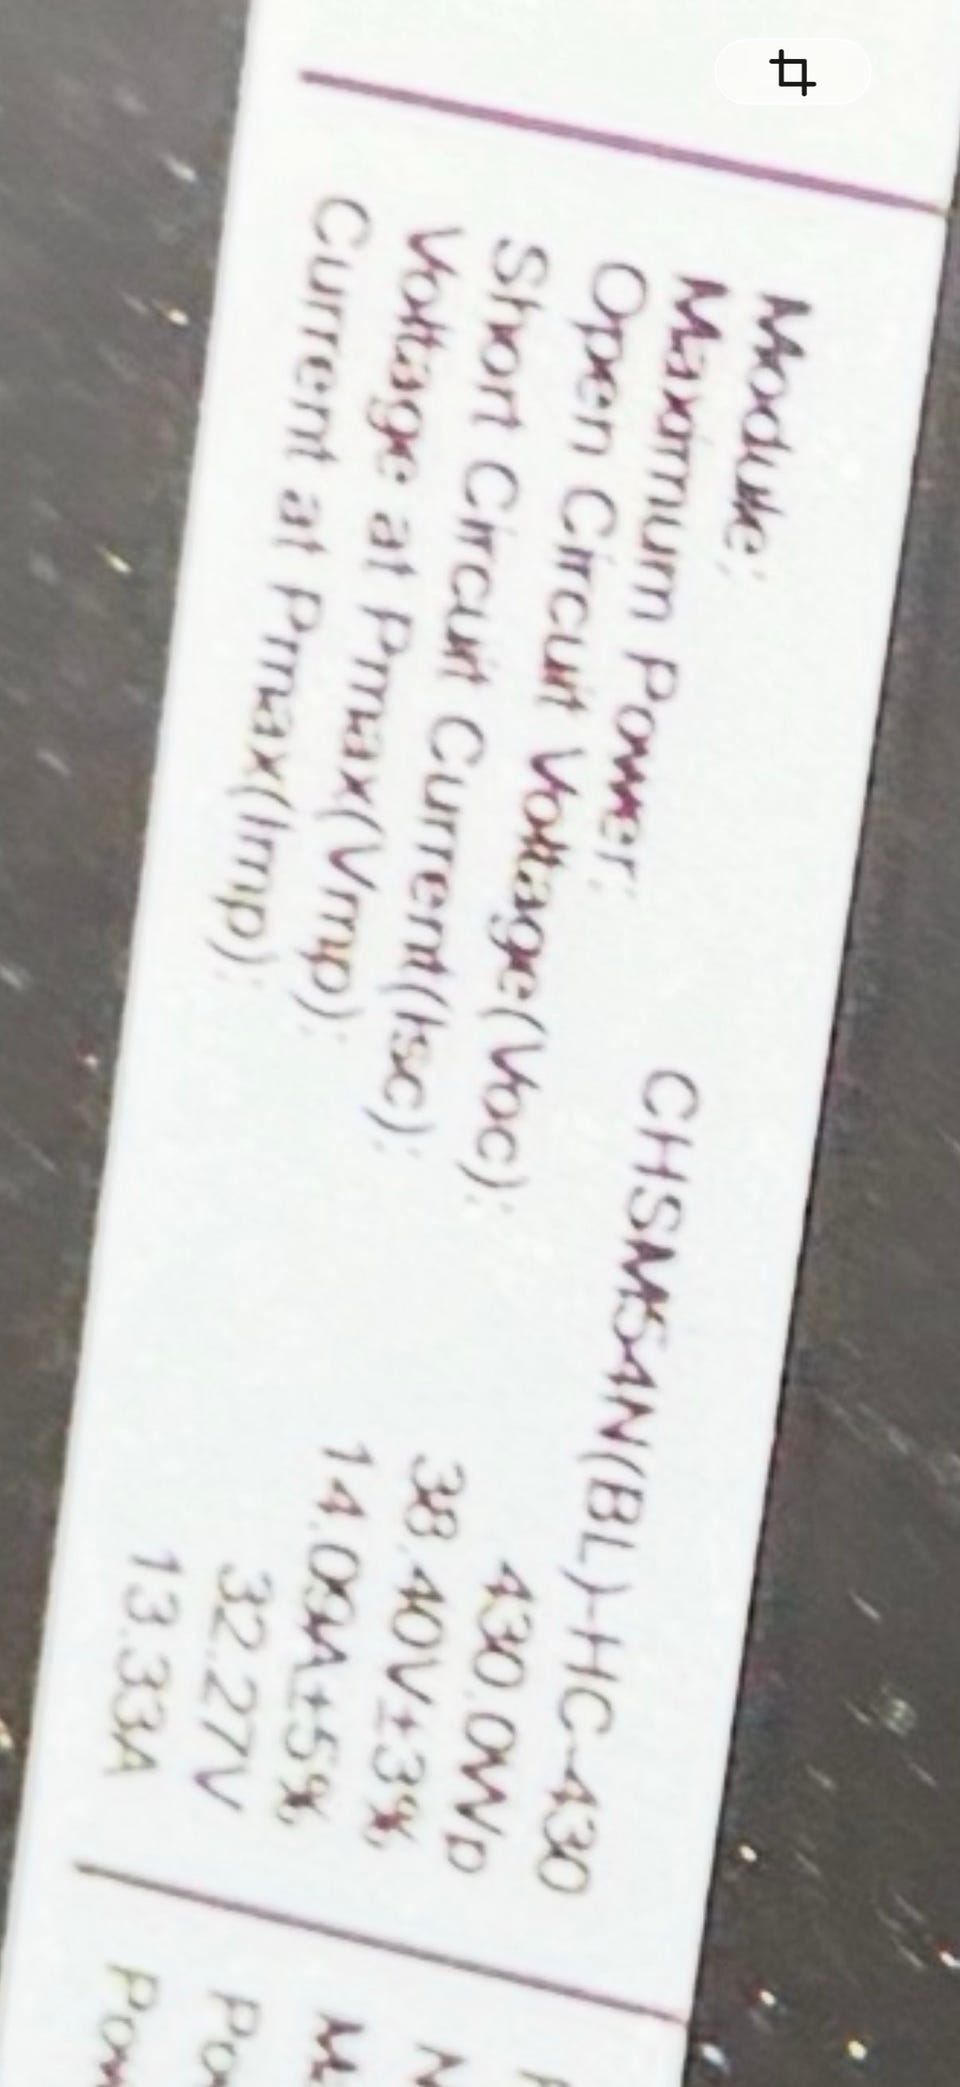 Module: CHSM54N(BL)-HC-430
Maximum Power: 430.0Wp
Open Circuit Voltage(Voc): 38.40V±3%
Short Circuit Current(Isc): 14.09A±5%
Voltage at Pmax(Vmp): 32.27V
Current at Pmax(Imp): 13.33A